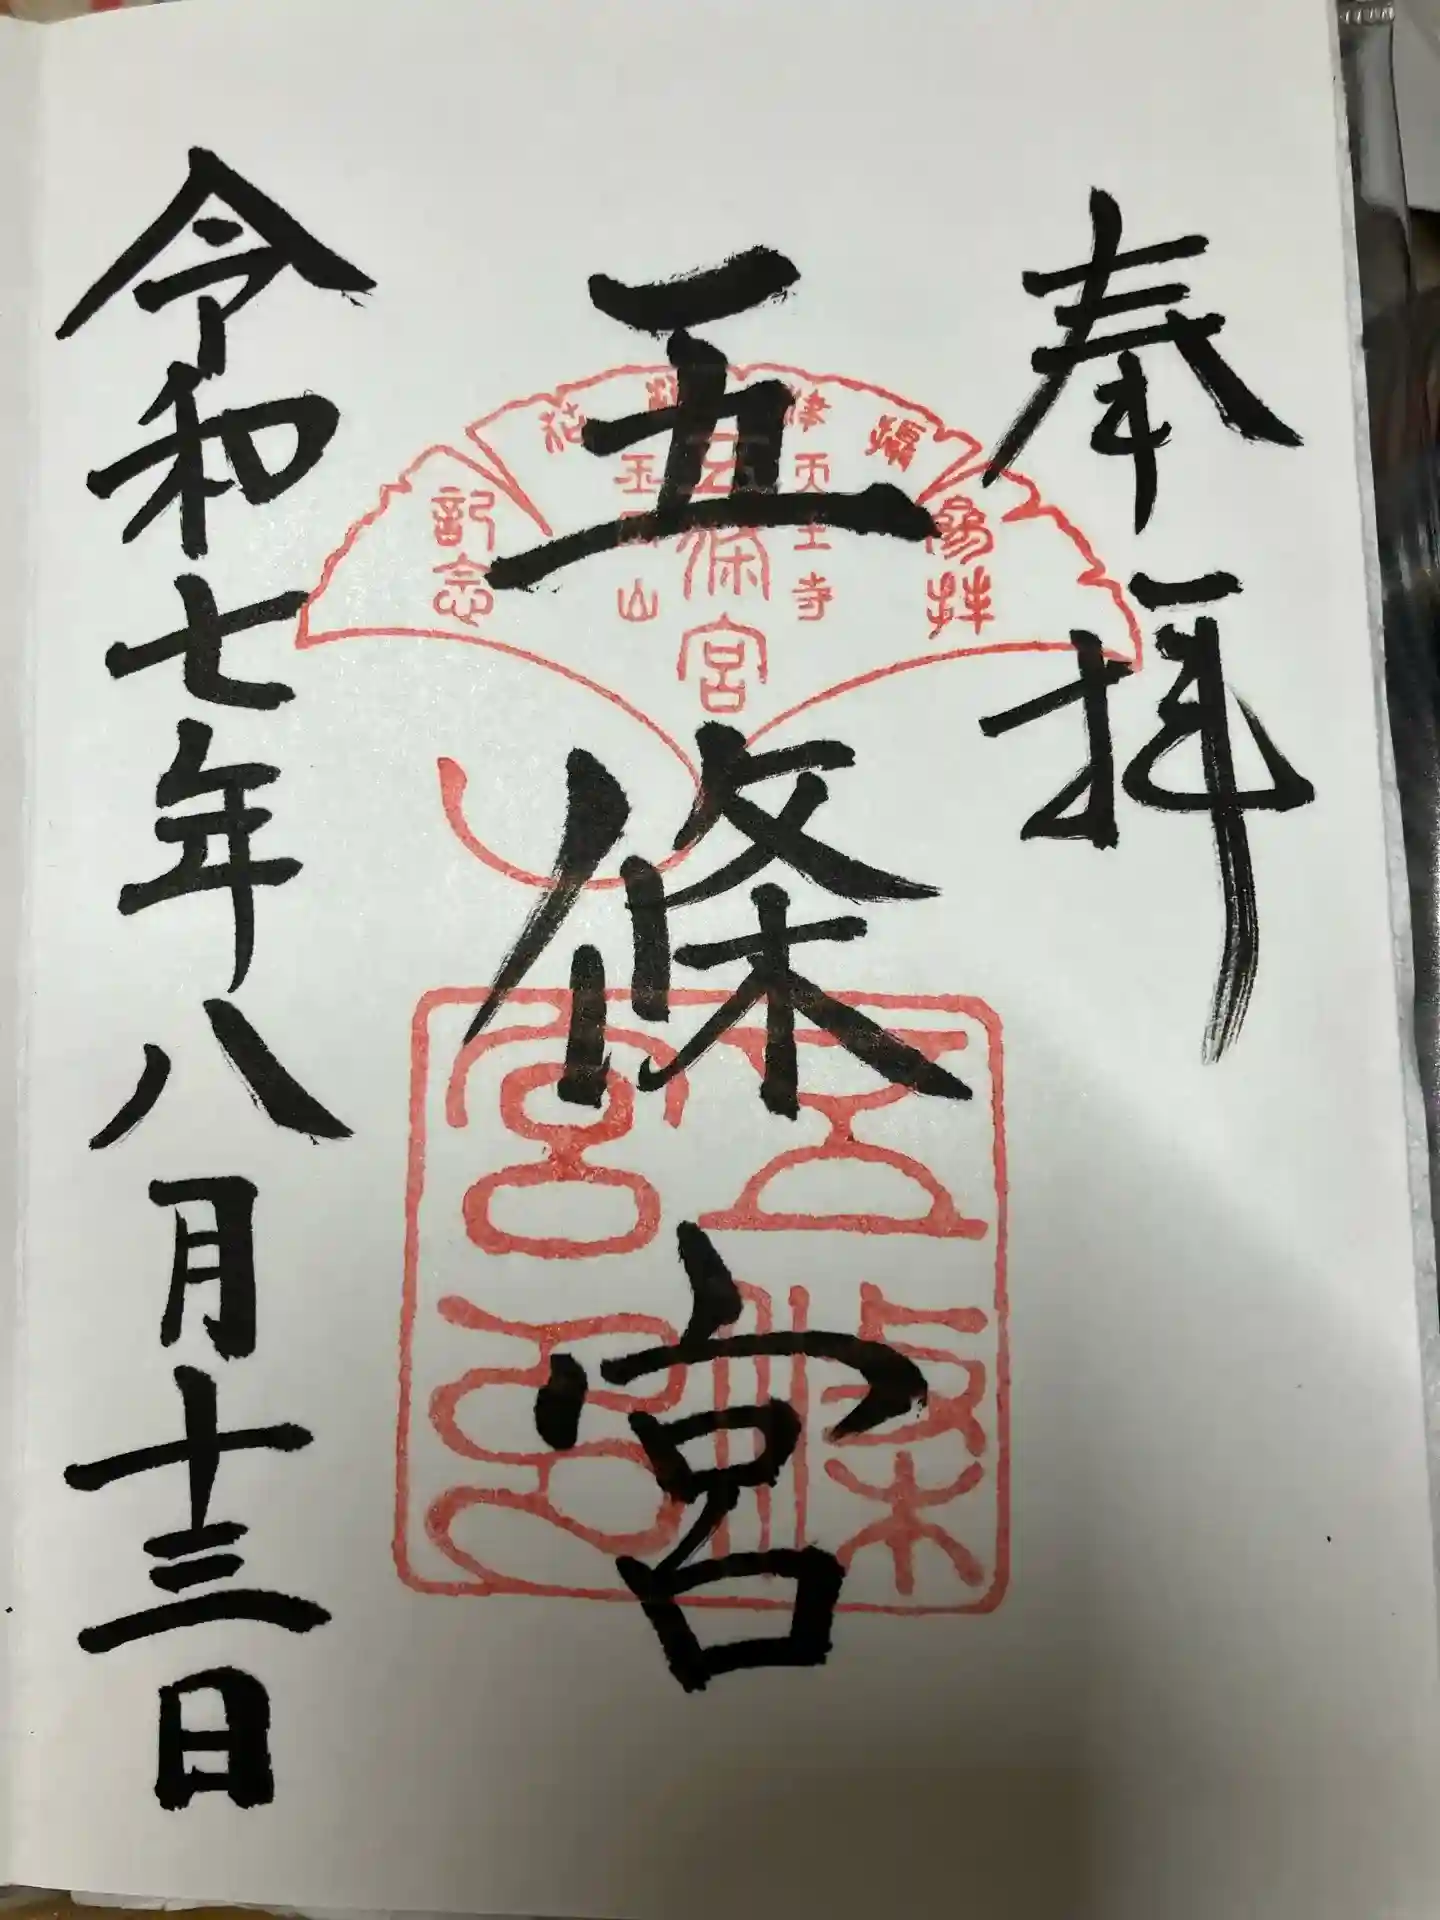 奉拝
五條宮
令和七年八月十三日
参拝
摂津
天王寺
五條宮
玉出山
記念
五條宮